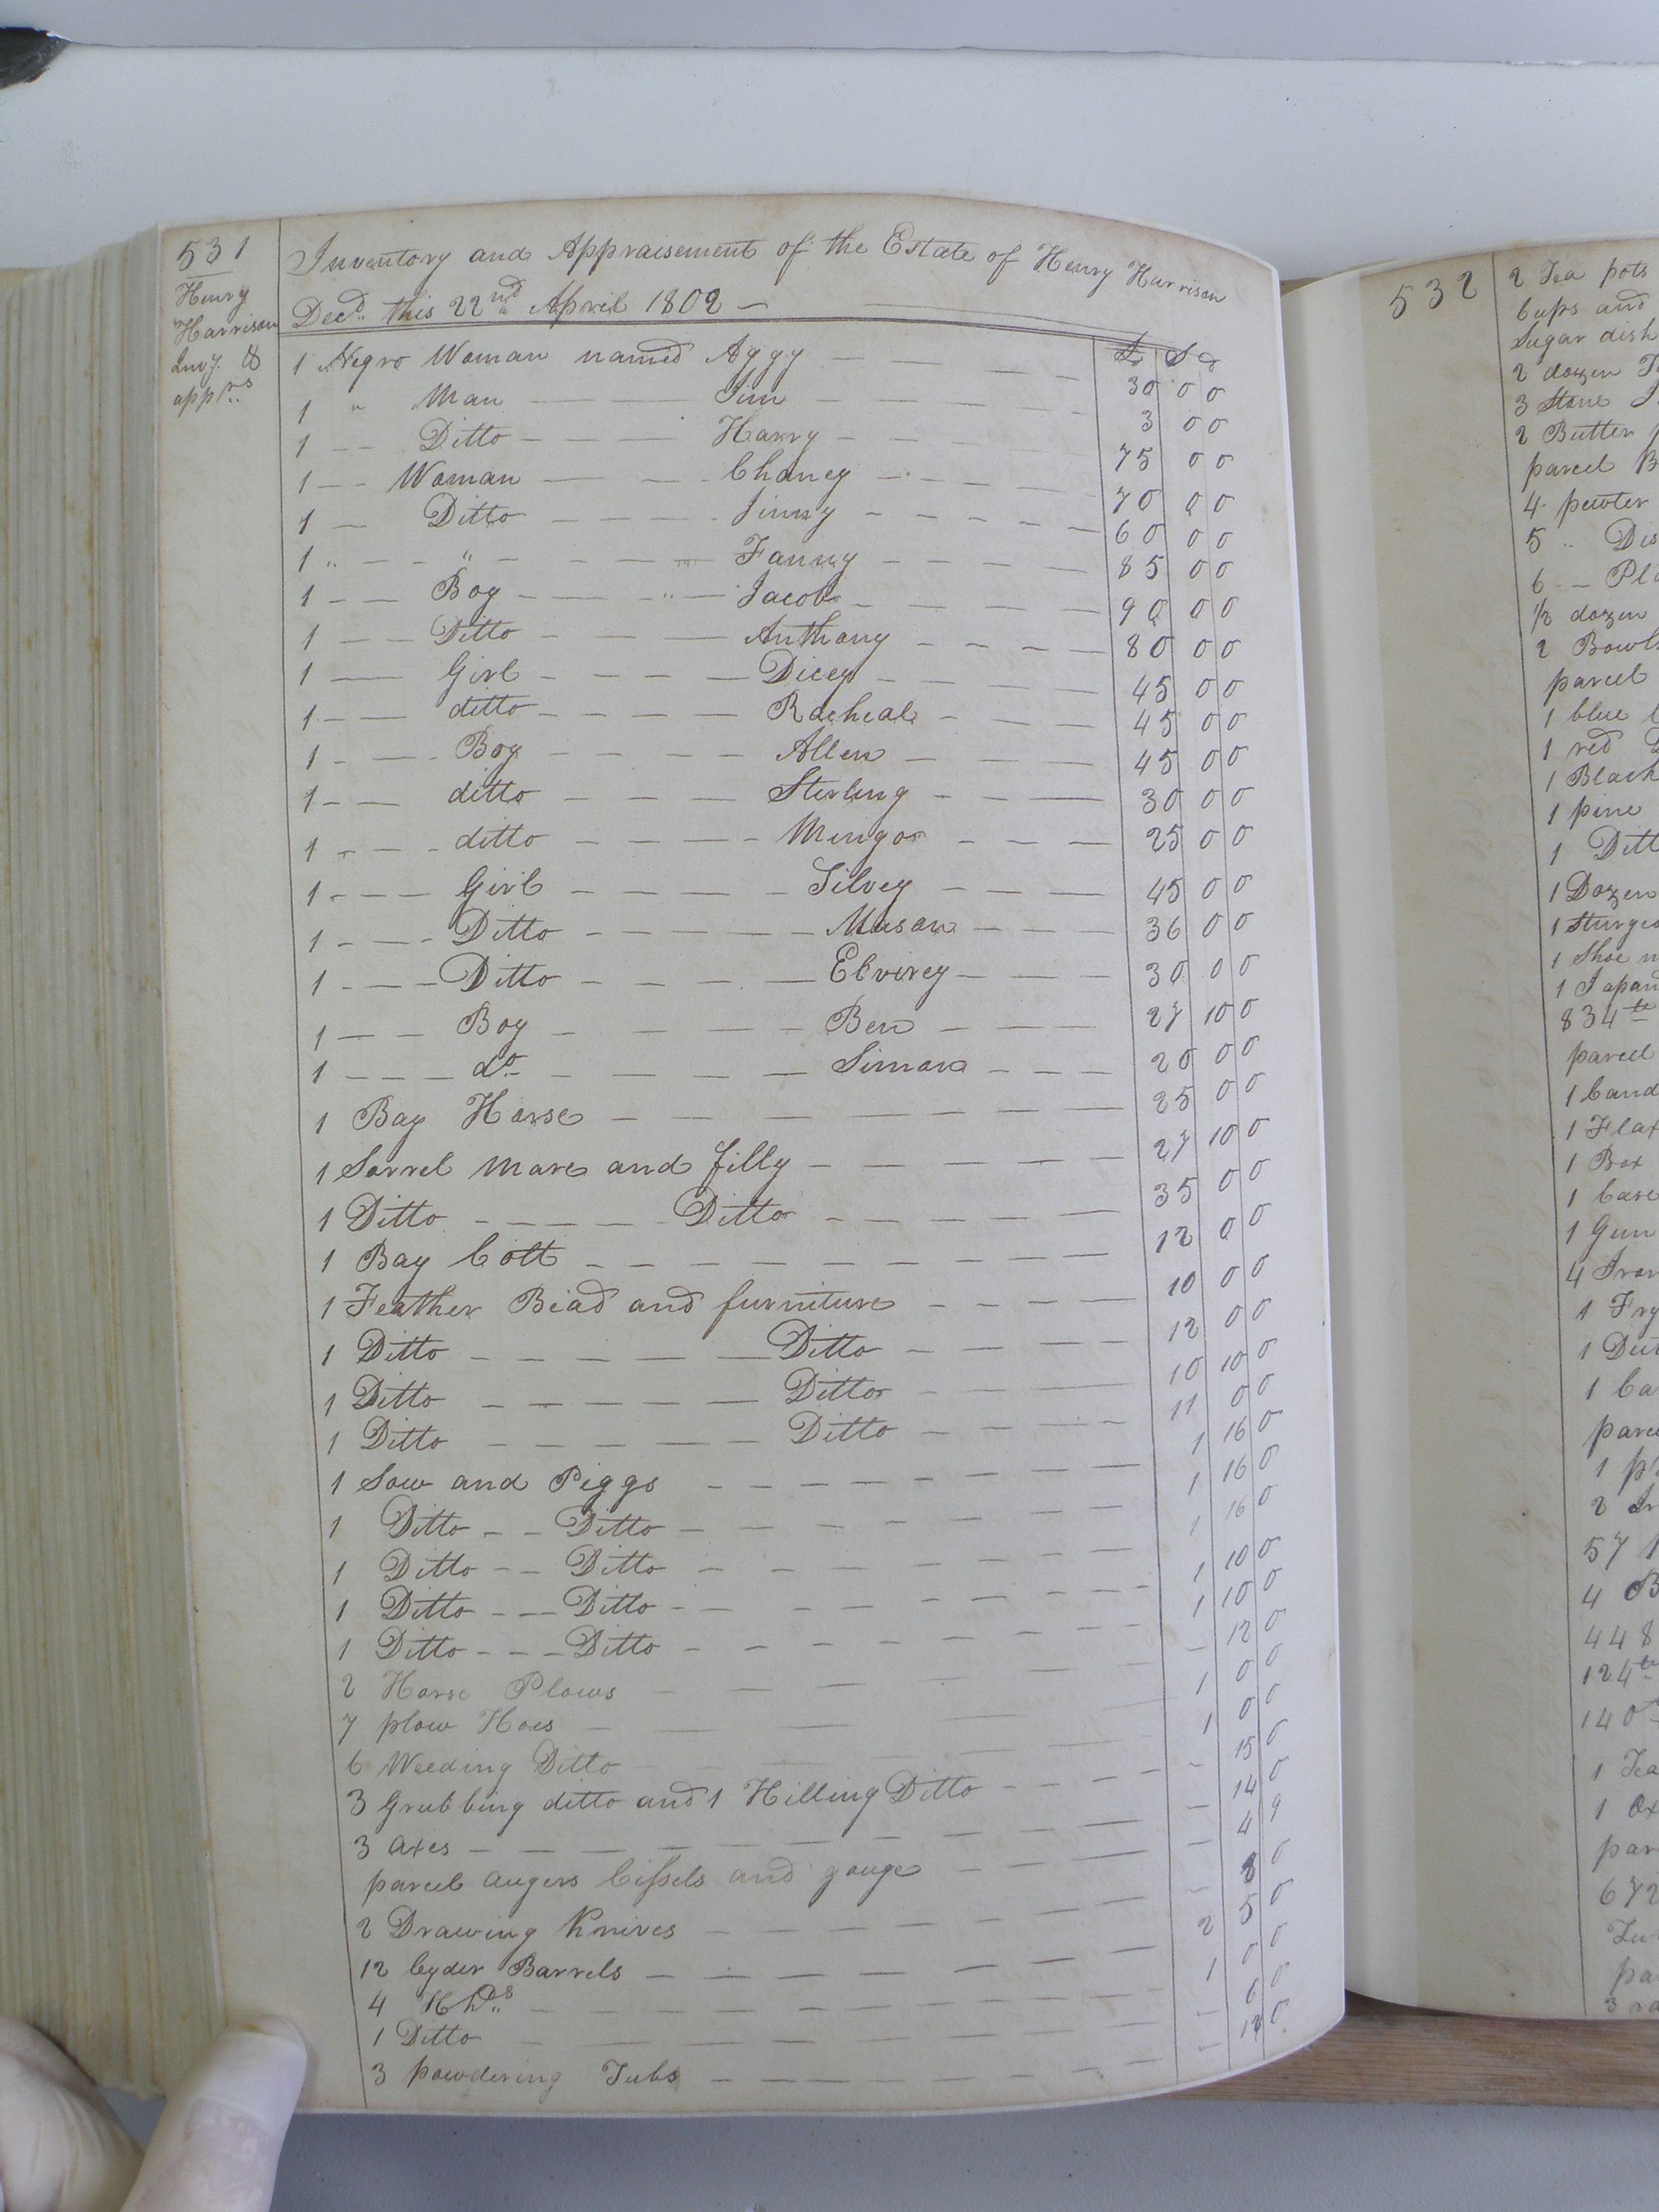 531
Henry
Harrison
Invy. &
apprs
Inventory and Appraisement of the Estate of Henry Harrison
Decd. this 22nd April 1802 —
£ S d
1 Negro Woman named Aggy — — 30 0 0
1 " Man — — Jim — 3 0 0
1 — Ditto — — Harry — 75 0 0
1 — Woman — — Chaney — 70 0 0
1 — Ditto — — Jinny — 60 0 0
1 " — " — — Fanny — 85 0 0
1 — Boy — " — Jacob — 90 0 0
1 — Ditto — — Anthony — 80 0 0
1 — Girl — — Dicey — 45 0 0
1 — ditto — — Racheal — 45 0 0
1 — Boy — — Allen — 45 0 0
1 — ditto — — Sterling — 30 0 0
1 — ditto — — Mingo — 25 0 0
1 — Girl — — Silvey — 45 0 0
1 — Ditto — — Mason — 36 0 0
1 — Ditto — — Elvirey — 30 0 0
1 — Boy — — Ben — 27 10 0
1 — do — — Simon — 20 0 0
1 Bay Horse — — 25 0 0
1 Sorrel Mare and filly — — 27 10 0
1 Ditto — — Ditto — 35 0 0
1 Bay Colt — — 12 0 0
1 Feather Bead and furniture — 10 0 0
1 Ditto — — Ditto — 12 0 0
1 Ditto — — Ditto — 10 10 0
1 Ditto — — Ditto — 11 0 0
1 Sow and Piggs — — 1 16 0
1 Ditto — Ditto — 1 16 0
1 Ditto — Ditto — 1 16 0
1 Ditto — Ditto — 1 10 0
1 Ditto — Ditto — 1 10 0
2 Horse Plows — — 12 0
7 plow Hoes — 1 0 0
6 Weeding Ditto — 1 0 0
3 Grubbing ditto and 1 Hilling Ditto — — 15 0
3 axes — — 14 0
parcel augers Cissels and gouge — — 4 9
2 Drawing Knives — — 8 0
12 Cyder Barrels — 2 5 0
4 Hhds — 1 0 0
1 Ditto — — 6 0
3 powdering Tubs — — 12 0
532
2 Tea pots
Cups and
Sugar dish
2 dozen
3 Stone
2 Butter
parcel
4 pewter
5 "
6 —
1/2 dozen
2 Bowls
parcel
1 blue
1 red
1 Black
1 pine
1 Ditt
1 Dozen
1 Sturge
1 Shoe
1 Japan
834 lb
parcel
1 Cand
1 Flax
1 Box
1 Case
1 Gun
4 Iron
1 Fry
1 Dut
1 Ca
parce
1 pr
2
57
4
448
124 lb
140
1 Tea
1 Ox
par
672
pa
3